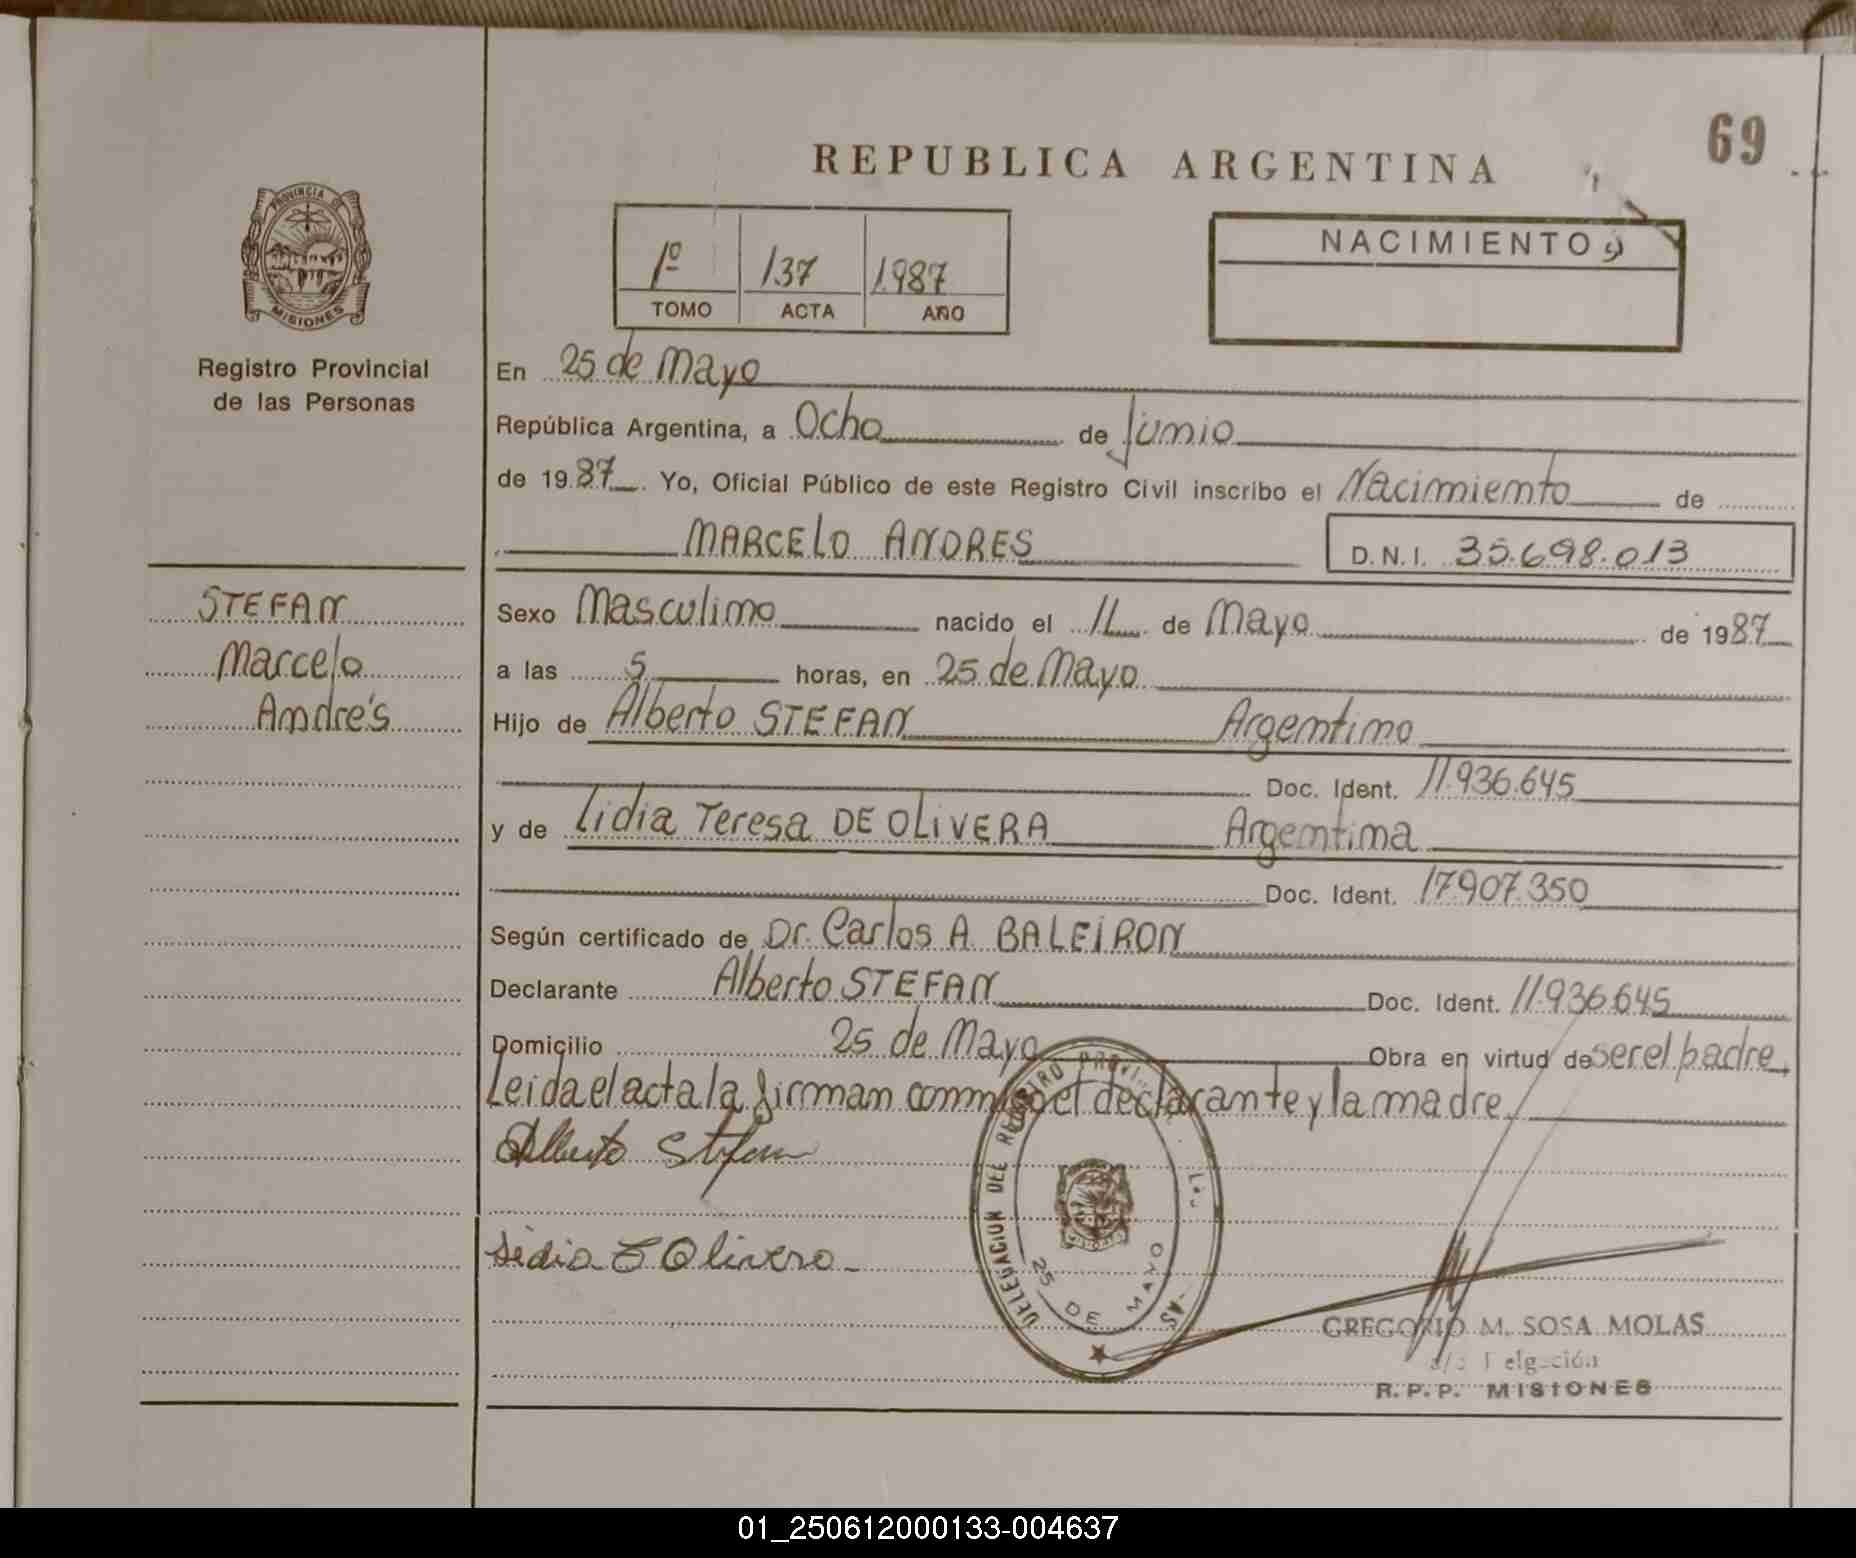 69
REPUBLICA ARGENTINA
PROVINCIA DE
MISIONES
Registro Provincial
de las Personas
1º 137 1987
TOMO ACTA AÑO
NACIMIENTO
En 25 de Mayo
República Argentina, a Ocho de Junio
de 1987. Yo, Oficial Público de este Registro Civil inscribo el Nacimiento de
MARCELO ANDRES D.N.I. 35.698.013
STEFAN
Marcelo
Andrés
Sexo Masculino nacido el 11 de Mayo de 1987
a las 5 horas, en 25 de Mayo
Hijo de Alberto STEFAN Argentino
Doc. Ident. 11.936.645
y de Lidia Teresa DE OLIVERA Argentina
Doc. Ident. 17.907.350
Según certificado de Dr. Carlos A. BALEIRON
Declarante Alberto STEFAN Doc. Ident. 11.936.645
Domicilio 25 de Mayo Obra en virtud de ser el padre,
Leida el acta la firman conmigo el declarante y la madre.
Alberto Stefan
Lidia T Olivera
DELEGACION DEL REGISTRO
25 DE MAYO
GREGORIO M. SOSA MOLAS
R.P.P. MISIONES
01_250612000133-004637